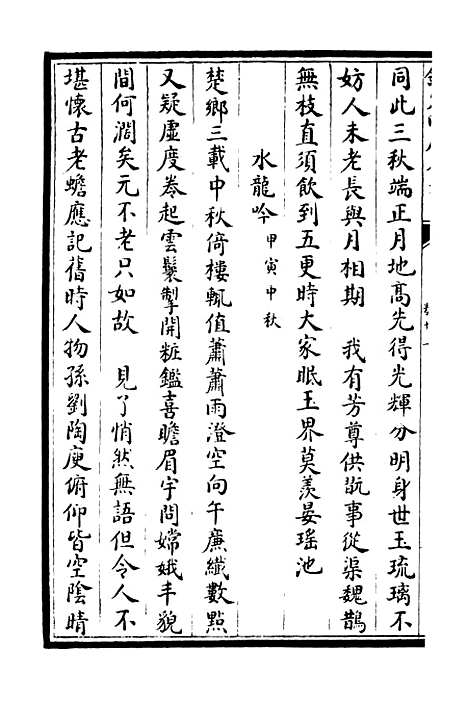 同此三秋端正月地髙先得光輝分明身世玉琉璃不
妨人未老長與月相期　我有芳尊供翫事從渠魏鵲
無枝直須飲到五更時大家眠玉界莫羡晏瑶池
水龍吟甲寅中秋
楚鄉三載中秋倚樓輒值蕭蕭雨澄空向午㢘纖數㸃
又疑虛度巻起雲鬟掣開粧鑑喜瞻眉宇問嫦娥丰貌
間何濶矣元不老只如故　見了悄然無語但令人不
堪懷古老蟾應記舊時人物孫劉陶庾俯仰皆空陰晴